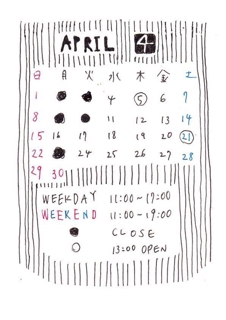 APRIL 4
日 月 火 水 木 金 土
1 4 5 6 7
8 11 12 13 14
15 16 17 18 19 20 21
22 24 25 26 27 28
29 30
WEEKDAY 11:00~19:00
WEEKEND 11:00~19:00
CLOSE
13:00 OPEN